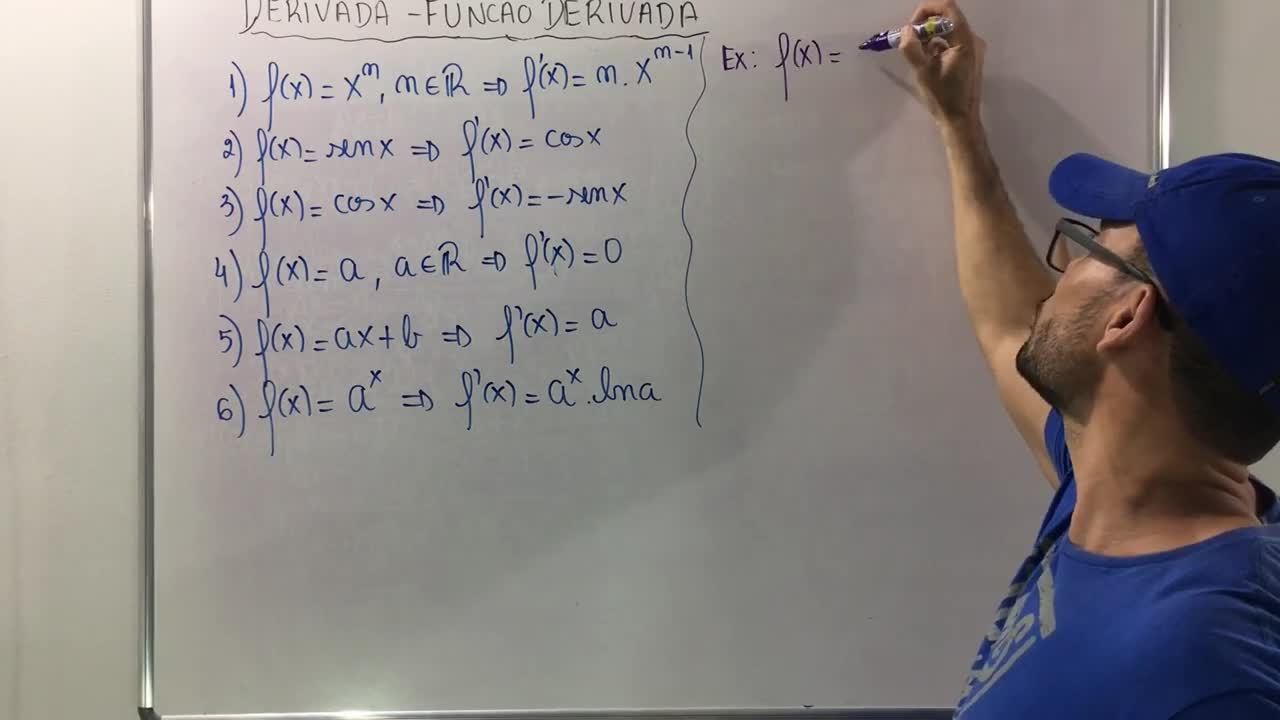 DERIVADA - FUNCAO DERIVADA
1) f(x) = x^n, n ∈ ℝ ⇒ f'(x) = n . x^{n-1}
2) f(x) = sen x ⇒ f'(x) = cos x
3) f(x) = cos x ⇒ f'(x) = -sen x
4) f(x) = a, a ∈ ℝ ⇒ f'(x) = 0
5) f(x) = ax + b ⇒ f'(x) = a
6) f(x) = a^x ⇒ f'(x) = a^x . ln a
Ex: f(x) =